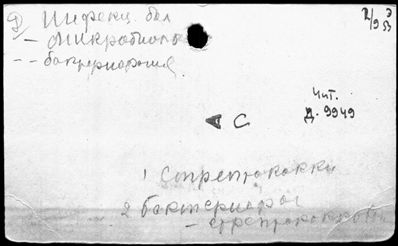 Инфекц. бол
— Микробиоль
-- бактериология.
Чит.
Д. 9949
С
1 Стрептококки
2 Бактериофаг
— стрептококков